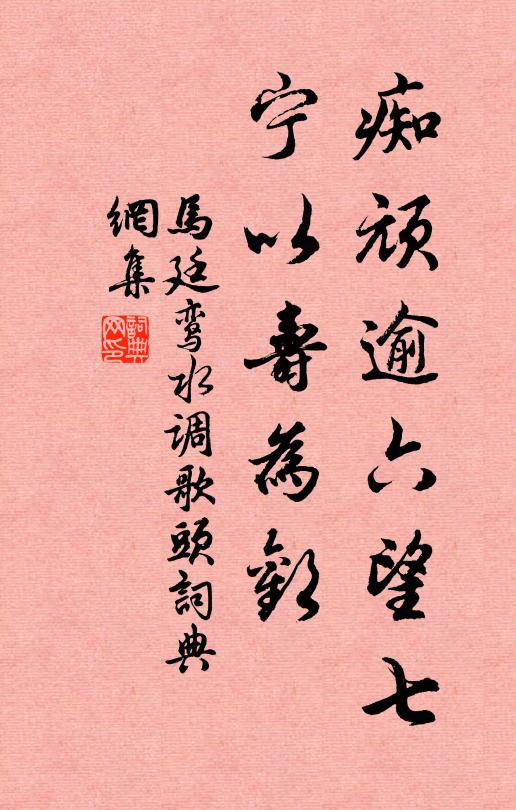 痴顽逾六望七
宁以壽為歡
馬廷鸾水调歌頭詞典
網集
詞典
网印